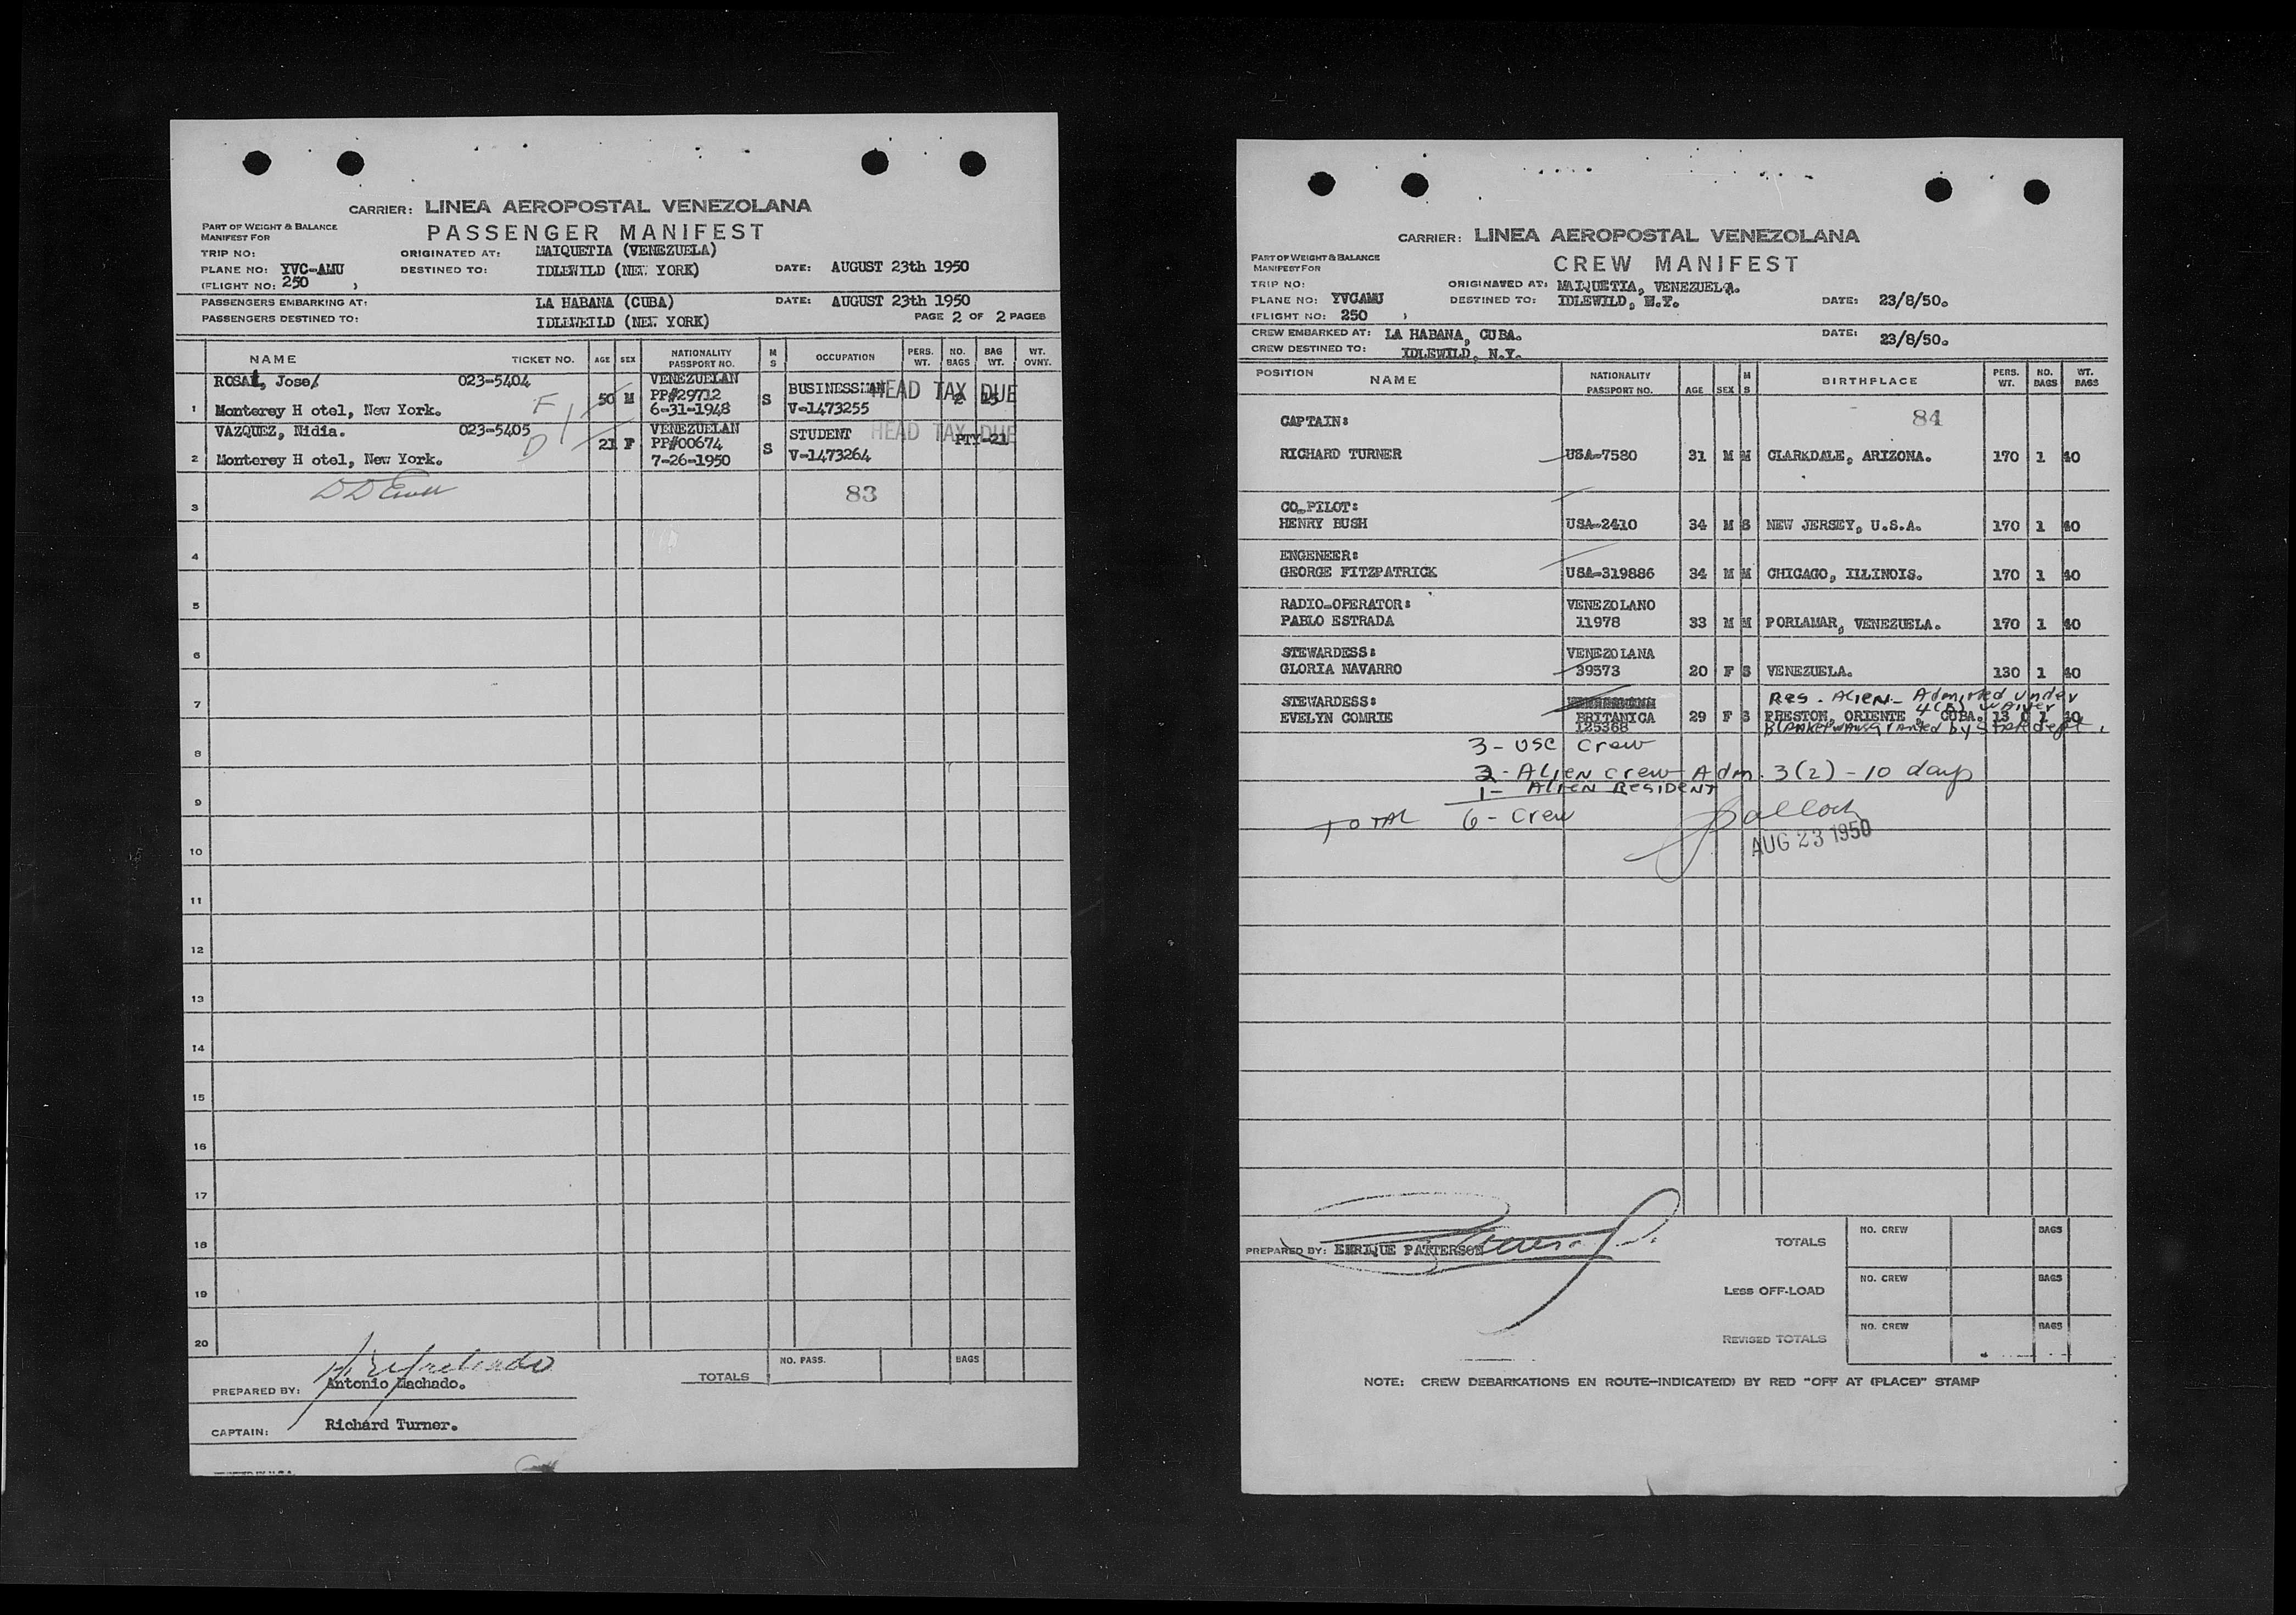 CARRIER: LINEA AEROPOSTAL VENEZOLANA
PART OF WEIGHT & BALANCE
MANIFEST FOR
PASSENGER MANIFEST
TRIP NO: ORIGINATED AT: MAIQUETIA (VENEZUELA)
PLANE NO: YVC-AMU DESTINED TO: IDLEWILD (NEW YORK) DATE: AUGUST 23th 1950
(FLIGHT NO: 250 )
PASSENGERS EMBARKING AT: LA HABANA (CUBA) DATE: AUGUST 23th 1950
PASSENGERS DESTINED TO: IDLEWEILD (NEW YORK) PAGE 2 OF 2 PAGES
NAME TICKET NO. AGE SEX NATIONALITY PASSPORT NO. M S OCCUPATION PERS. WT. NO. BAGS BAG WT. WT. OVNY.
Jose 023-5404 VENEZUELAN
PP#29712 BUSINESSMAN HEAD TAX DUE
1 Monterey H otel, New York. F 50 M 6-31-1948 S V-1473255
VAZQUEZ, Nidia. 023-5405 VENEZUELAN
D 21 F PP#00674 S STUDENT HEAD TAX DUE PTY-21
2 Monterey H otel, New York. 7-26-1950 V-1473264
83
3
4
5
6
7
8
9
10
11
12
13
14
15
16
17
18
19
20
TOTALS NO. PASS. BAGS
PREPARED BY: Antonio Machado.
CAPTAIN: Richard Turner.
CARRIER: LINEA AEROPOSTAL VENEZOLANA
PART OF WEIGHT & BALANCE
MANIFEST FOR
CREW MANIFEST
TRIP NO: ORIGINATED AT: MAIQUETIA, VENEZUELA.
PLANE NO: YVCAMU DESTINED TO: IDLEWILD, N.Y. DATE: 23/8/50.
(FLIGHT NO: 250 )
CREW EMBARKED AT: LA HABANA, CUBA. DATE: 23/8/50.
CREW DESTINED TO: IDLEWILD, N.Y.
POSITION NAME NATIONALITY PASSPORT NO. AGE SEX M S BIRTHPLACE PERS. WT. NO. BAGS WT. BAGS
84
CAPTAIN:
RICHARD TURNER USA-7580 31 M M CLARKDALE, ARIZONA. 170 1 40
CO_PILOT:
HENRY BUSH USA-2410 34 M S NEW JERSEY, U.S.A. 170 1 40
ENGENEER:
GEORGE FITZPATRICK USA-319886 34 M M CHICAGO, ILLINOIS. 170 1 40
RADIO-OPERATOR: VENEZOLANO
PABLO ESTRADA 11978 33 M M PORLAMAR, VENEZUELA. 170 1 40
STEWARDESS: VENEZOLANA
GLORIA NAVARRO 39573 20 F S VENEZUELA. 130 1 40
STEWARDESS: Res. Alien - Admitted under
4(B) waiver
EVELYN COMRIE BRITANICA 29 F S PRESTON, ORIENTE, CUBA. 13 0 1 40
125368 Blanket waiver granted by State dept.
3 - USC Crew
2 - Alien crew Adm. 3(2) - 10 days
1 - Alien Resident
TOTAL 6 - Crew
AUG 23 1950
PREPARED BY: ENRIQUE PATTERSON
TOTALS NO. CREW BAGS
LESS OFF-LOAD NO. CREW BAGS
REVISED TOTALS NO. CREW BAGS
NOTE: CREW DEBARKATIONS EN ROUTE-INDICATE(D) BY RED "OFF AT (PLACE)" STAMP